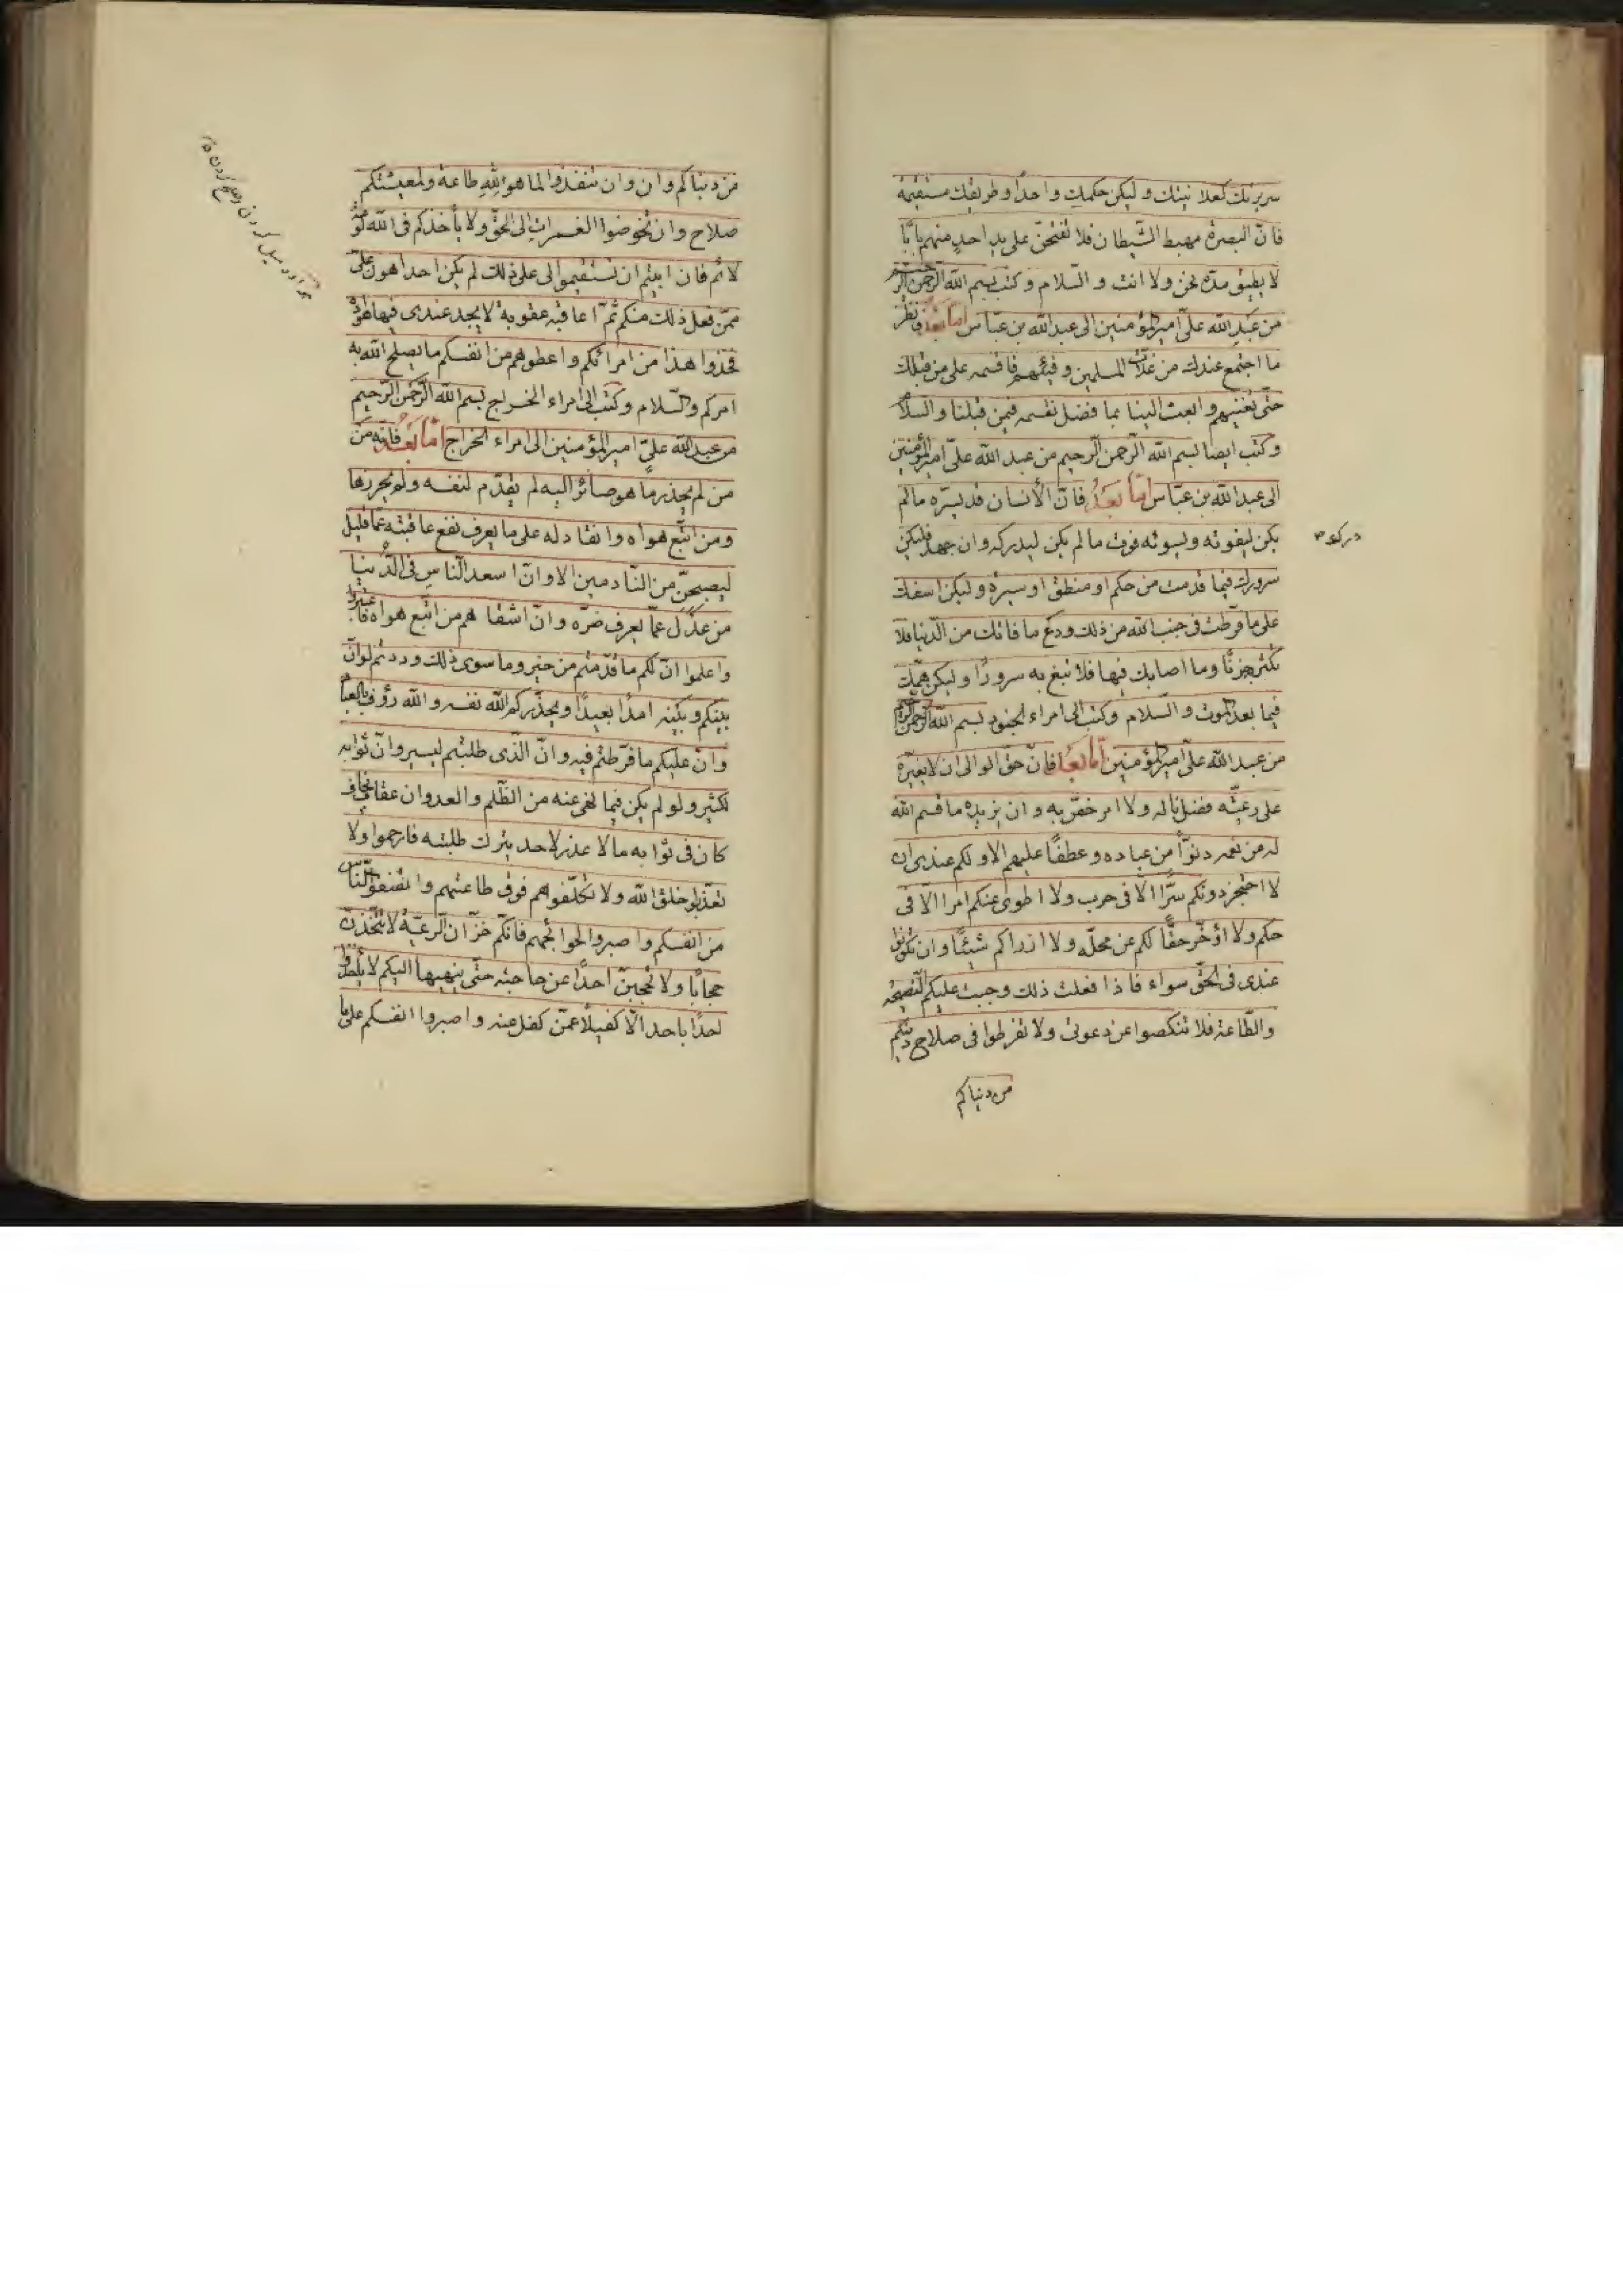 سريرتك كعلانيتك وليكن حكمك واحدا وطريقتك مستقيمة
فانّ البصرة مهبط الشّيطان فلا تفتحنّ على يد احدٍ منهم بابًا
لا يطيق سدّه نحن ولا انت والسّلام وكتب بسم الله الرّحمن الرّحيم
من عبد الله علىّ امير المؤمنين الى عبد الله بن عبّاس امّا بَعد فانظر
ما اجتمع عندك من غلّات المسلمين وفيئهم فاقسمه على من قبلك
حتّى تغنيهم وابعث الينا بما فضل نقسمه فيمن قبلنا والسلام
وكتب ايضا بسم الله الرّحمن الرّحيم من عبد الله علىّ امير المؤمنين
الى عبد الله بن عبّاس امّا بَعدُ فانّ الأنسان قد يسرّه ما لم
يكن ليفوته ويسوئه فوت ما لم يكن ليدركه وان جهد فليكن
دركه
سرورك فيما قدمت من حكم او منطق او سيرة وليكن اسفك
على ما فرّطت فى جنب الله من ذلك ودع ما فاتك من الدّنيا فلا
تكثر حزنًا وما اصابك فيها فلا تبغ به سرورًا وليكن همّك
فيما بعد الموت والسّلام وكتب الى امراء الجنود بسم الله الرّحمن الرّحيم
من عبد الله علىّ امير المؤمنين امّا بعد فانّ حقّ الوالى ان لا يغيّره
على رعيّته فضل ناله ولا امر خصّ به وان يزيده ما قسم الله
له من نعمه دنوّاً من عباده وعطفًا عليهم الا ولكم عندى ان
لا احتجز دونكم سرًّا الّا فى حرب ولا اطوى عنكم امرا الّا فى
حكم ولا اؤخّر حقًّا لكم عن محلّه ولا ازراكم شيئًا وان تكونوا
عندى فى الحقّ سواء فاذا فعلت ذلك وجبت عليكم النّصيحة
والطّاعة فلا تنكصوا عن دعوتى ولا تفرطوا فى صلاح دينكم
من دنياكم
من دنياكم وان وان تنفذوا لما هو لِلّهِ طاعة ولمعيشتكم
صلاح وان تخوضوا الغمرات الى الحقّ ولا يأخذكم فى الله لومة
لائم فان ابيتم ان تستقيموا لى على ذلك لم يكن احدا هون علىّ
ممّن فعل ذلك منكم ثمّ اعاقبه عقوبة لا يجد عندى فيها هوادة
فخذوا هذا من امرائكم واعطوهم من انفسكم ما يصلح الله به
امركم والسّلام وكتب الى امراء الخراج بسم الله الرّحمن الرّحيم
من عبد الله علىّ امير المؤمنين الى امراء الخراج امّا بَعُد فانّه من
من لم يحذر ما هو صائر اليه لم يقدّم لنفسه ولم يحرزها
ومن اتّبع هواه وانقاد له على ما يعرف نفع عاقبته عمّا قليل
ليصبحنّ من النّادمين الا وانّ اسعد النّاس فى الدّنيا
من عدل عمّا يعرف ضرّه وانّ اشقاهم من اتّبع هواه فاعتبروا
واعلموا انّ لكم ما قدّمتم من خير وما سوى ذلك وددتم لو انّ
بينكم وبينه امدًا بعيدًا ويحذّركم الله نفسه والله رؤف بالعباد
وانّ عليكم ما فرّطتم فيه وانّ الّذى طلبتم ليسير وانّ ثوابه
لكثير ولو لم يكن فيما نهى عنه من الظّلم والعدوان عقاب يخاف
كان فى ثوابه ما لا عذر لاحد بترك طلبته فارحموا ولا
تعذّبوا خلق الله ولا تكلّفوهم فوق طاعتهم وانصفوا النّاس
من انفسكم واصبروا لحوائجهم فانّكم خزّان الرّعيّة لا تتّخذنّ
حجابًا ولا تحجبنّ احدًا عن حاجته حتّى ينهيها اليكم لا تأخذوا
احدًا باحد الّا كفيلًا عمّن كفل عنه واصبروا انفسكم على ما